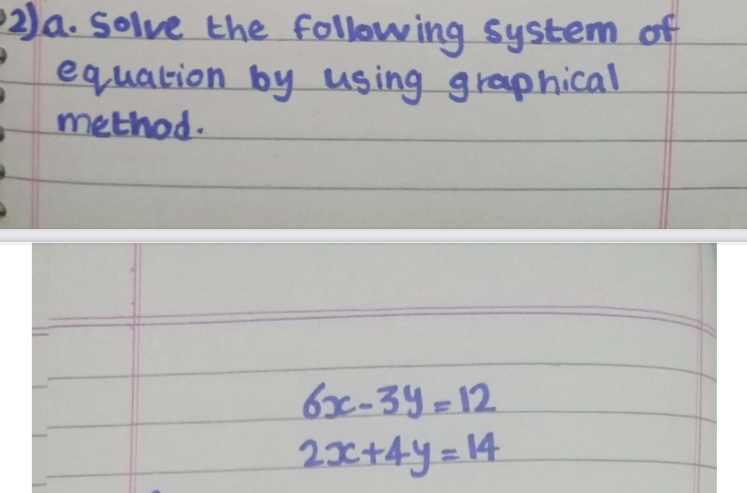 2) a. Solve the following system of
equation by using graphical
method.
6x-3y=12
2x+4y=14